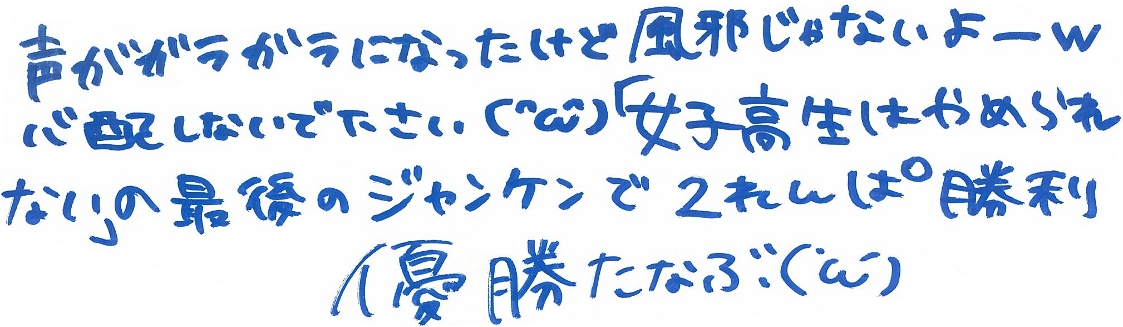 声がガラガラになったけど風邪じゃないよーw
心配しないで下さい(^ω^)「女子高生はやめられ
ない」の最後のジャンケンで2れんぱ勝利
優勝たなぶ:(´ω`)